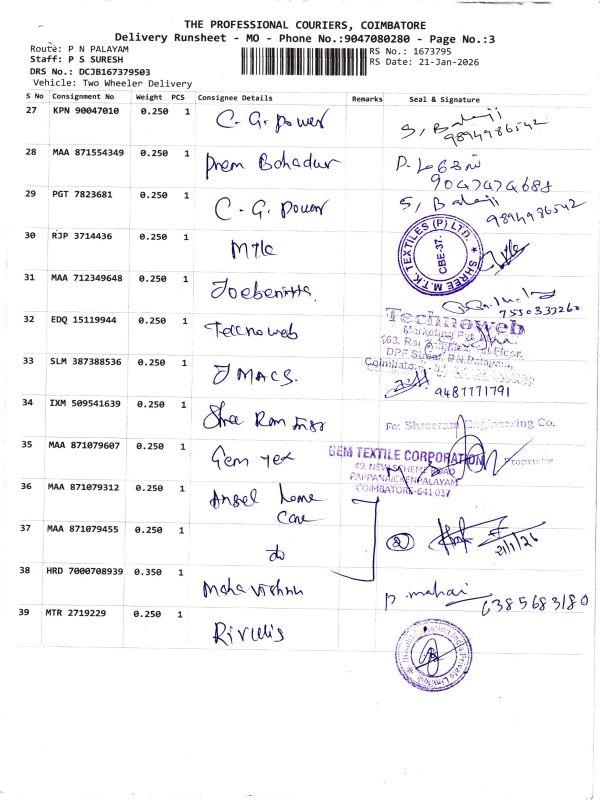 THE PROFESSIONAL COURIERS, COIMBATORE
Delivery Runsheet - MO - Phone No.:9047080280 - Page No.:3
Route: P N PALAYAM
Staff: P S SURESH
DRS No.: DCJB167379503
Vehicle: Two Wheeler Delivery
RS No.: 1673795
RS Date: 21-Jan-2026
S No Consignment No Weight PCS Consignee Details Remarks Seal & Signature
27 KPN 90047010 0.250 1 C. G. power S, Balaji
9894986542
28 MAA 871554349 0.250 1 Prem Bohadur
9047474688
29 PGT 7823681 0.250 1 C. G. power S, Balaji
9894986542
30 RJP 3714436 0.250 1 Mtk
SHREE M.T.K. TEXTILES (P) LTD.
CBE-37.
31 MAA 712349648 0.250 1
7550333260
32 EDQ 15119944 0.250 1 Tecnoweb
Technoweb
Marketing Pvt
163, Raj
DPF Street, P.N.Palayam,
Coimbatore
33 SLM 387388536 0.250 1 J MACS.
9487771791
34 IXM 509541639 0.250 1 Shree Ram
For Shreeram Engineering Co.
Proprietor
35 MAA 871079607 0.250 1 Gem Tex
GEM TEXTILE CORPORATION
49, NEW SCHEME ROAD
PAPPANAICKENPALAYAM
COIMBATORE-641 037
36 MAA 871079312 0.250 1 Angel home
Care
37 MAA 871079455 0.250 1 do
2
21/1/26
38 HRD 7000708939 0.350 1 Maha Vishnu
P. mahai
6385683180
39 MTR 2719229 0.250 1 Rivulis
India Private Limited